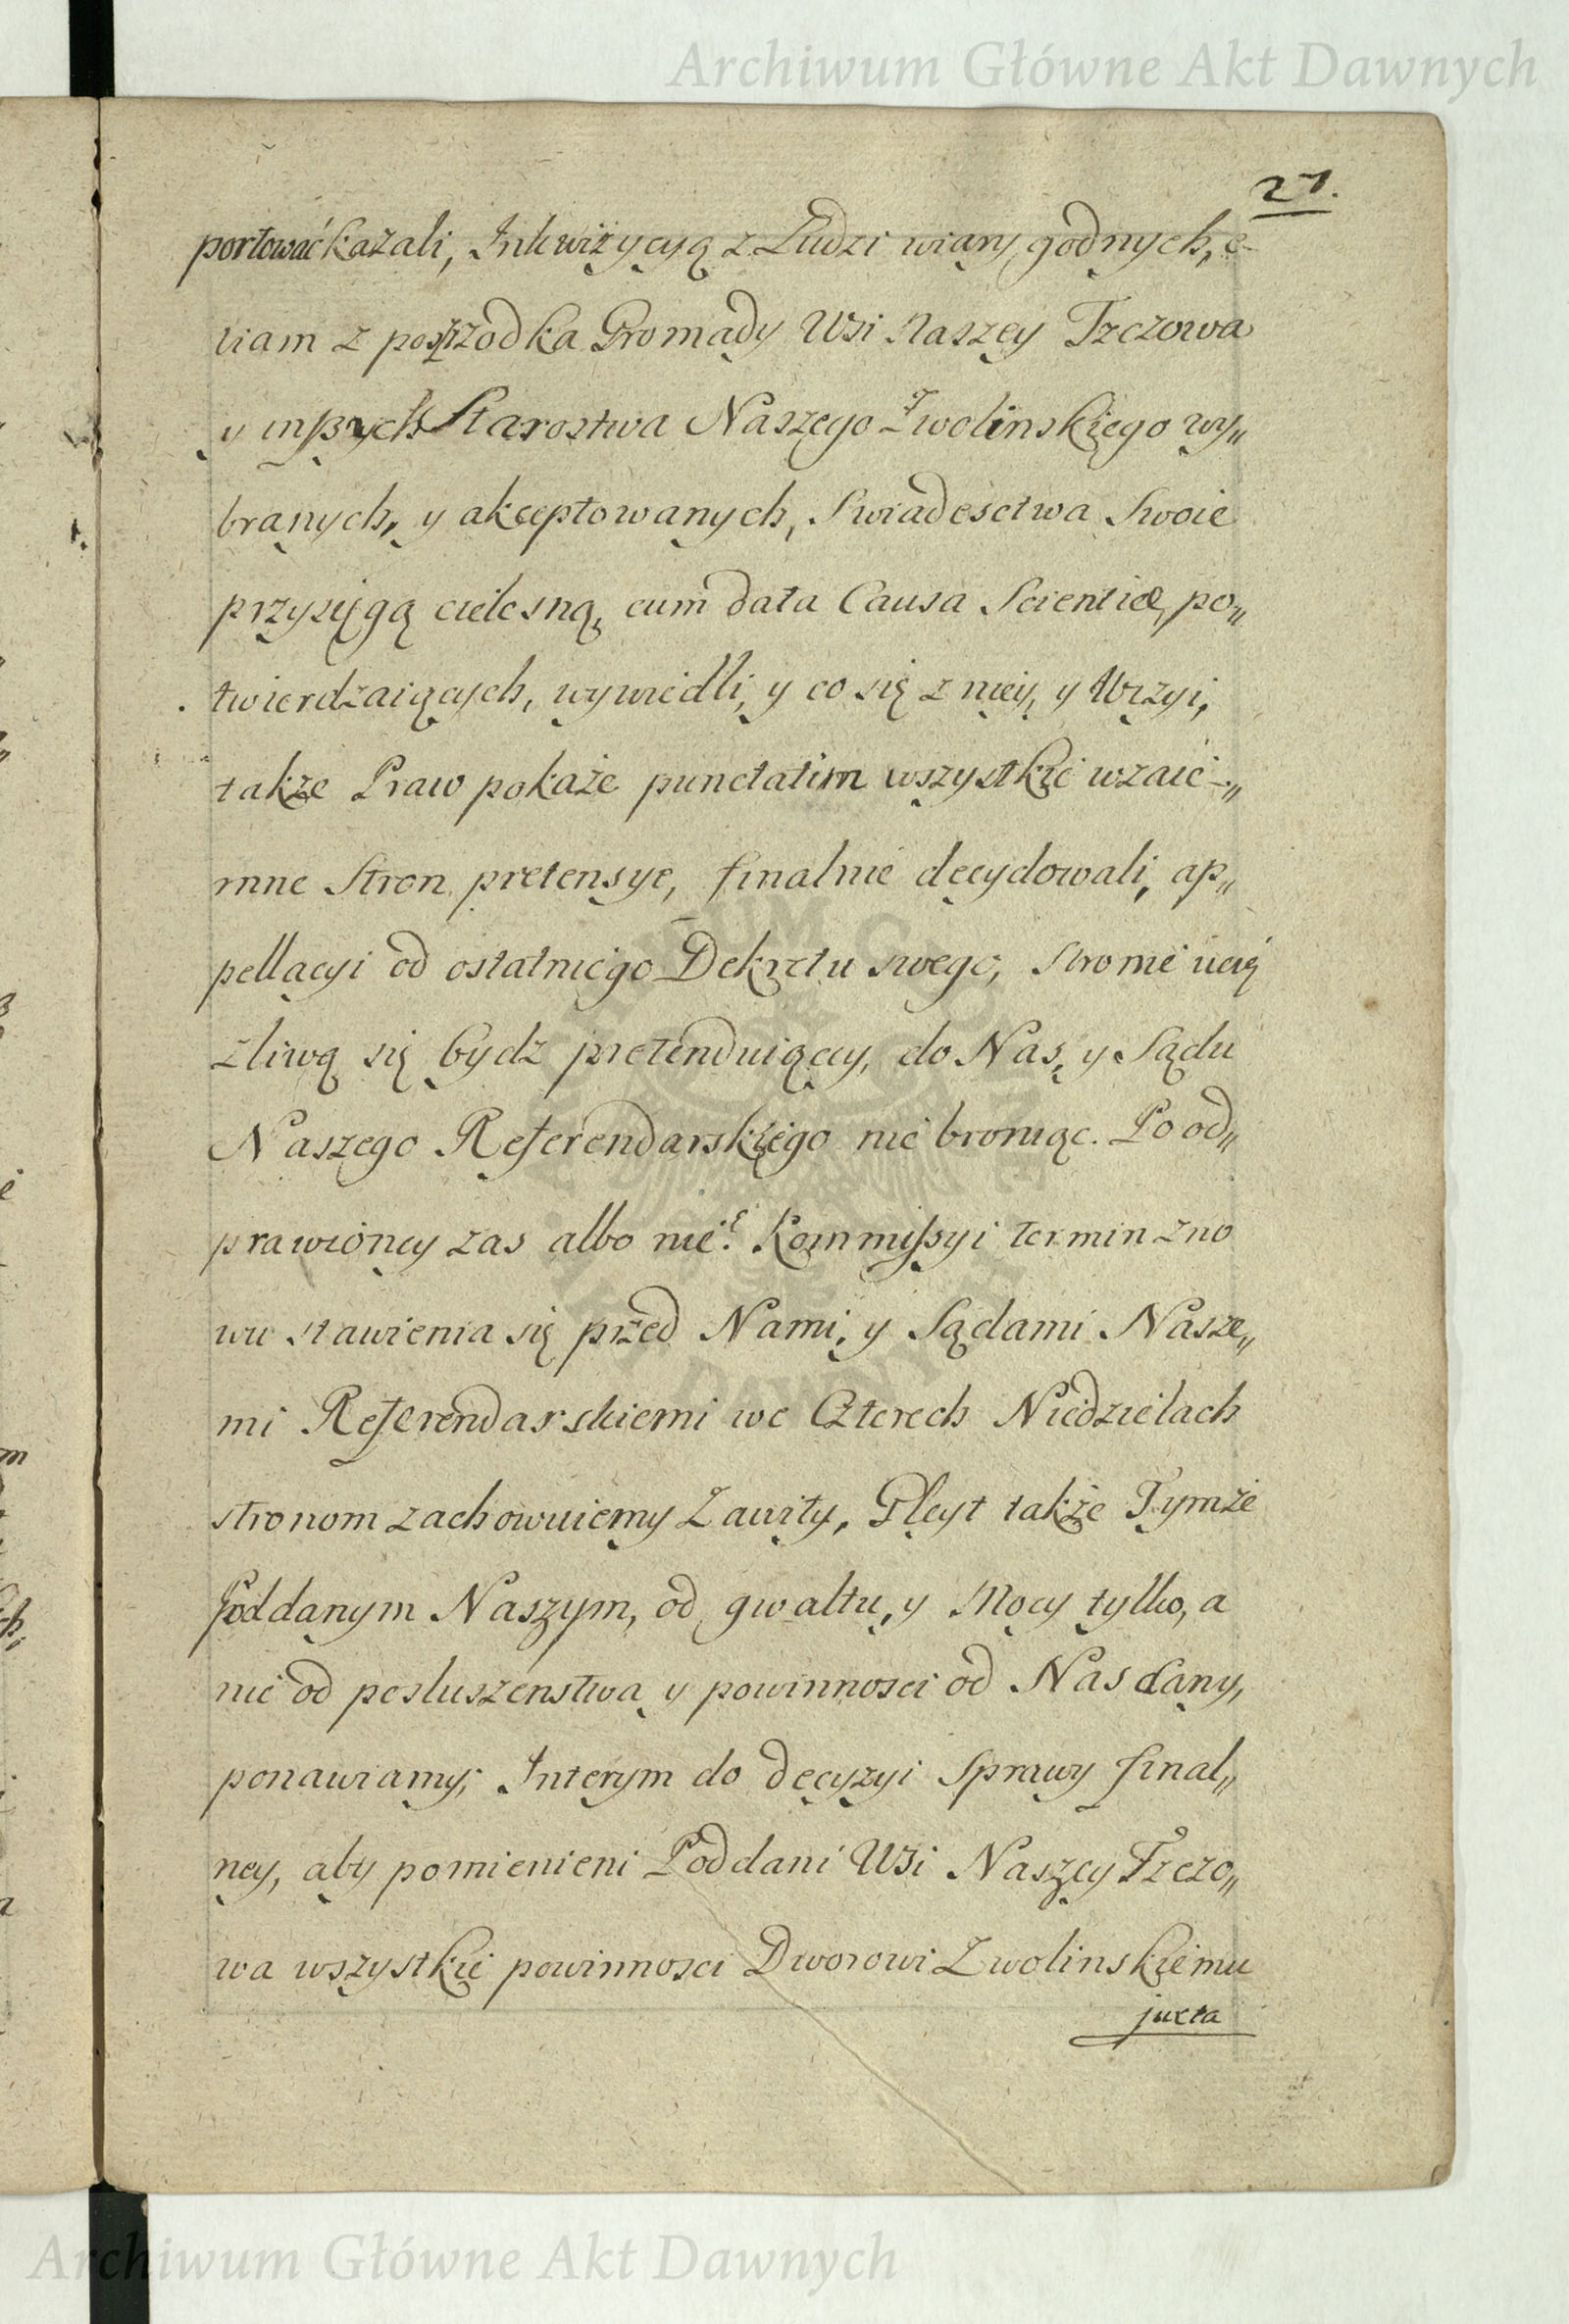 Archiwum Główne Akt Dawnych
27.
portować kazali, Inkwizycyą z Ludzi wiary godnych, e-
tiam z poszrzodka Gromady Wsi Naszey Tczowa
y inszych Starostwa Naszego Zwolinskiego wy„
branych, y akceptowanych, Swiadesctwa Swoie
przysięgą cielesną, cum data Causa Scientiæ, po„
twierdzaiących, wywiedli, y co się z niey, y Wizyi,
także Praw pokaże punctatim wszystkie wzaie-„
mne Stron pretensye, finalnie decydowali, ap„
pellacyi od ostatniego Dekretu swego, stronie ucią
zliwą się bydz pretenduiącey, do Nas, y Sądu
Naszego Referendarskiego nie broniąc. Po od„
prawioney zas albo nie? Kommissyi termin zno
wu stawienia się przed Nami, y Sądami Nasze„
mi Referendarskiemi we Czterech Niedzielach
stronom zachowuiemy Zawity, Gleyt także Tymże
Poddanym Naszym, od gwałtu, y Mocy tylko, a
nie od posłuszenstwa y powinnosci od Nas dany,
ponawiamy; Interym do decyzyi Sprawy final„
ney, aby pomienieni Poddani Wsi Naszey Tczo„
wa wszystkie powinnosci Dworowi Zwolinskiemu
juxta
Archiwum Główne Akt Dawnych